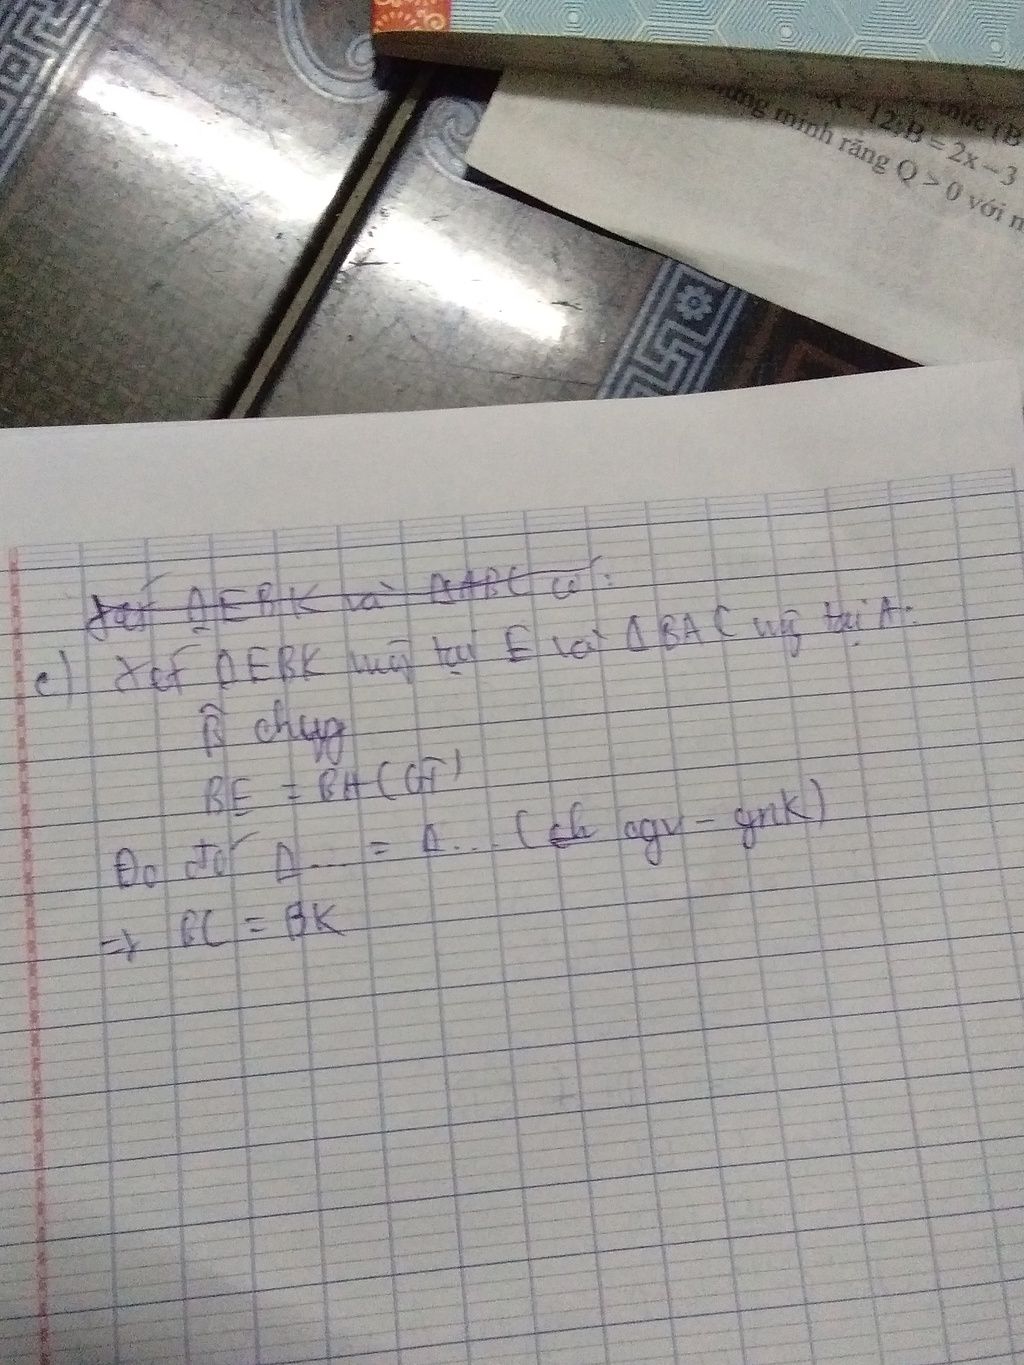 thức (B
x - 12; B = 2x - 3
minh rằng Q > 0 với m
Xét ΔEBK và ΔABC có:
c) Xét ΔEBK vuông tại E và ΔBAC vuông tại A:
B̂ chung
BE = BA (GT)
Do đó Δ... = Δ... (cgv - gnk)
=> BC = BK